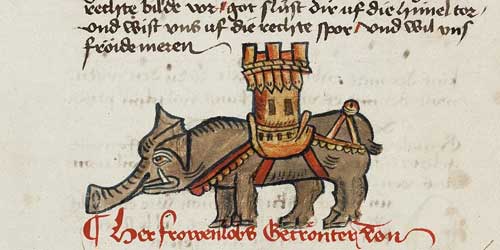 rechte bilde vor got slůst dir uf die himel tor
und wist uns uf die rechte spor und wil uns
fröide meren
¶ Her frowenlobs Getrönter Don